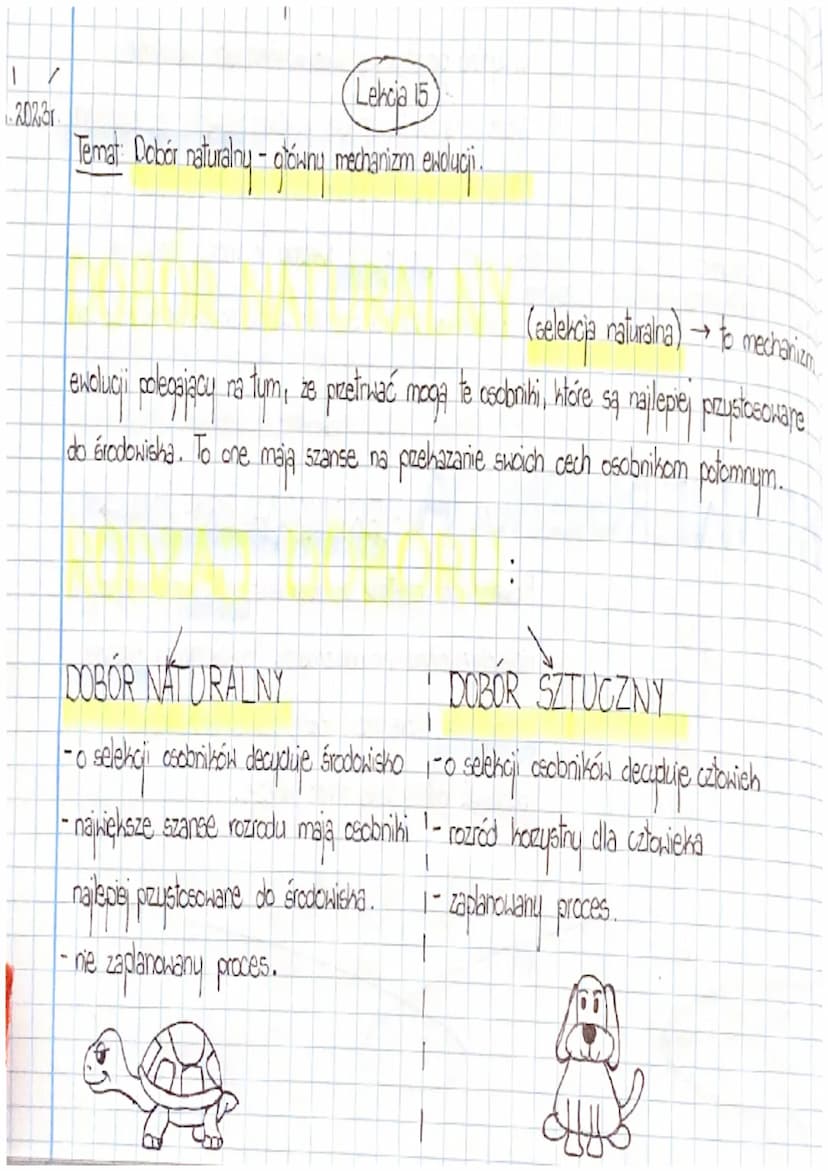 Lekcja 15
.2023r.
Temat: Dobór naturalny - główny mechanizm ewolucji.
DOBÓR NATURALNY (selekcja naturalna) → to mechanizm
ewolucji polegający na tym, że przetrwać mogą te osobniki, które są najlepiej przystosowane
do środowiska. To one mają szanse na przekazanie swoich cech osobnikom potomnym.
RODZAJ DOBORU:
DOBÓR NATURALNY
-o selekcji osobników decyduje środowisko
- największe szanse rozrodu mają osobniki
najlepiej przystosowane do środowiska.
- nie zaplanowany proces.
DOBÓR SZTUCZNY
-o selekcji osobników decyduje człowiek
- rozród korzystny dla człowieka
- zaplanowany proces.